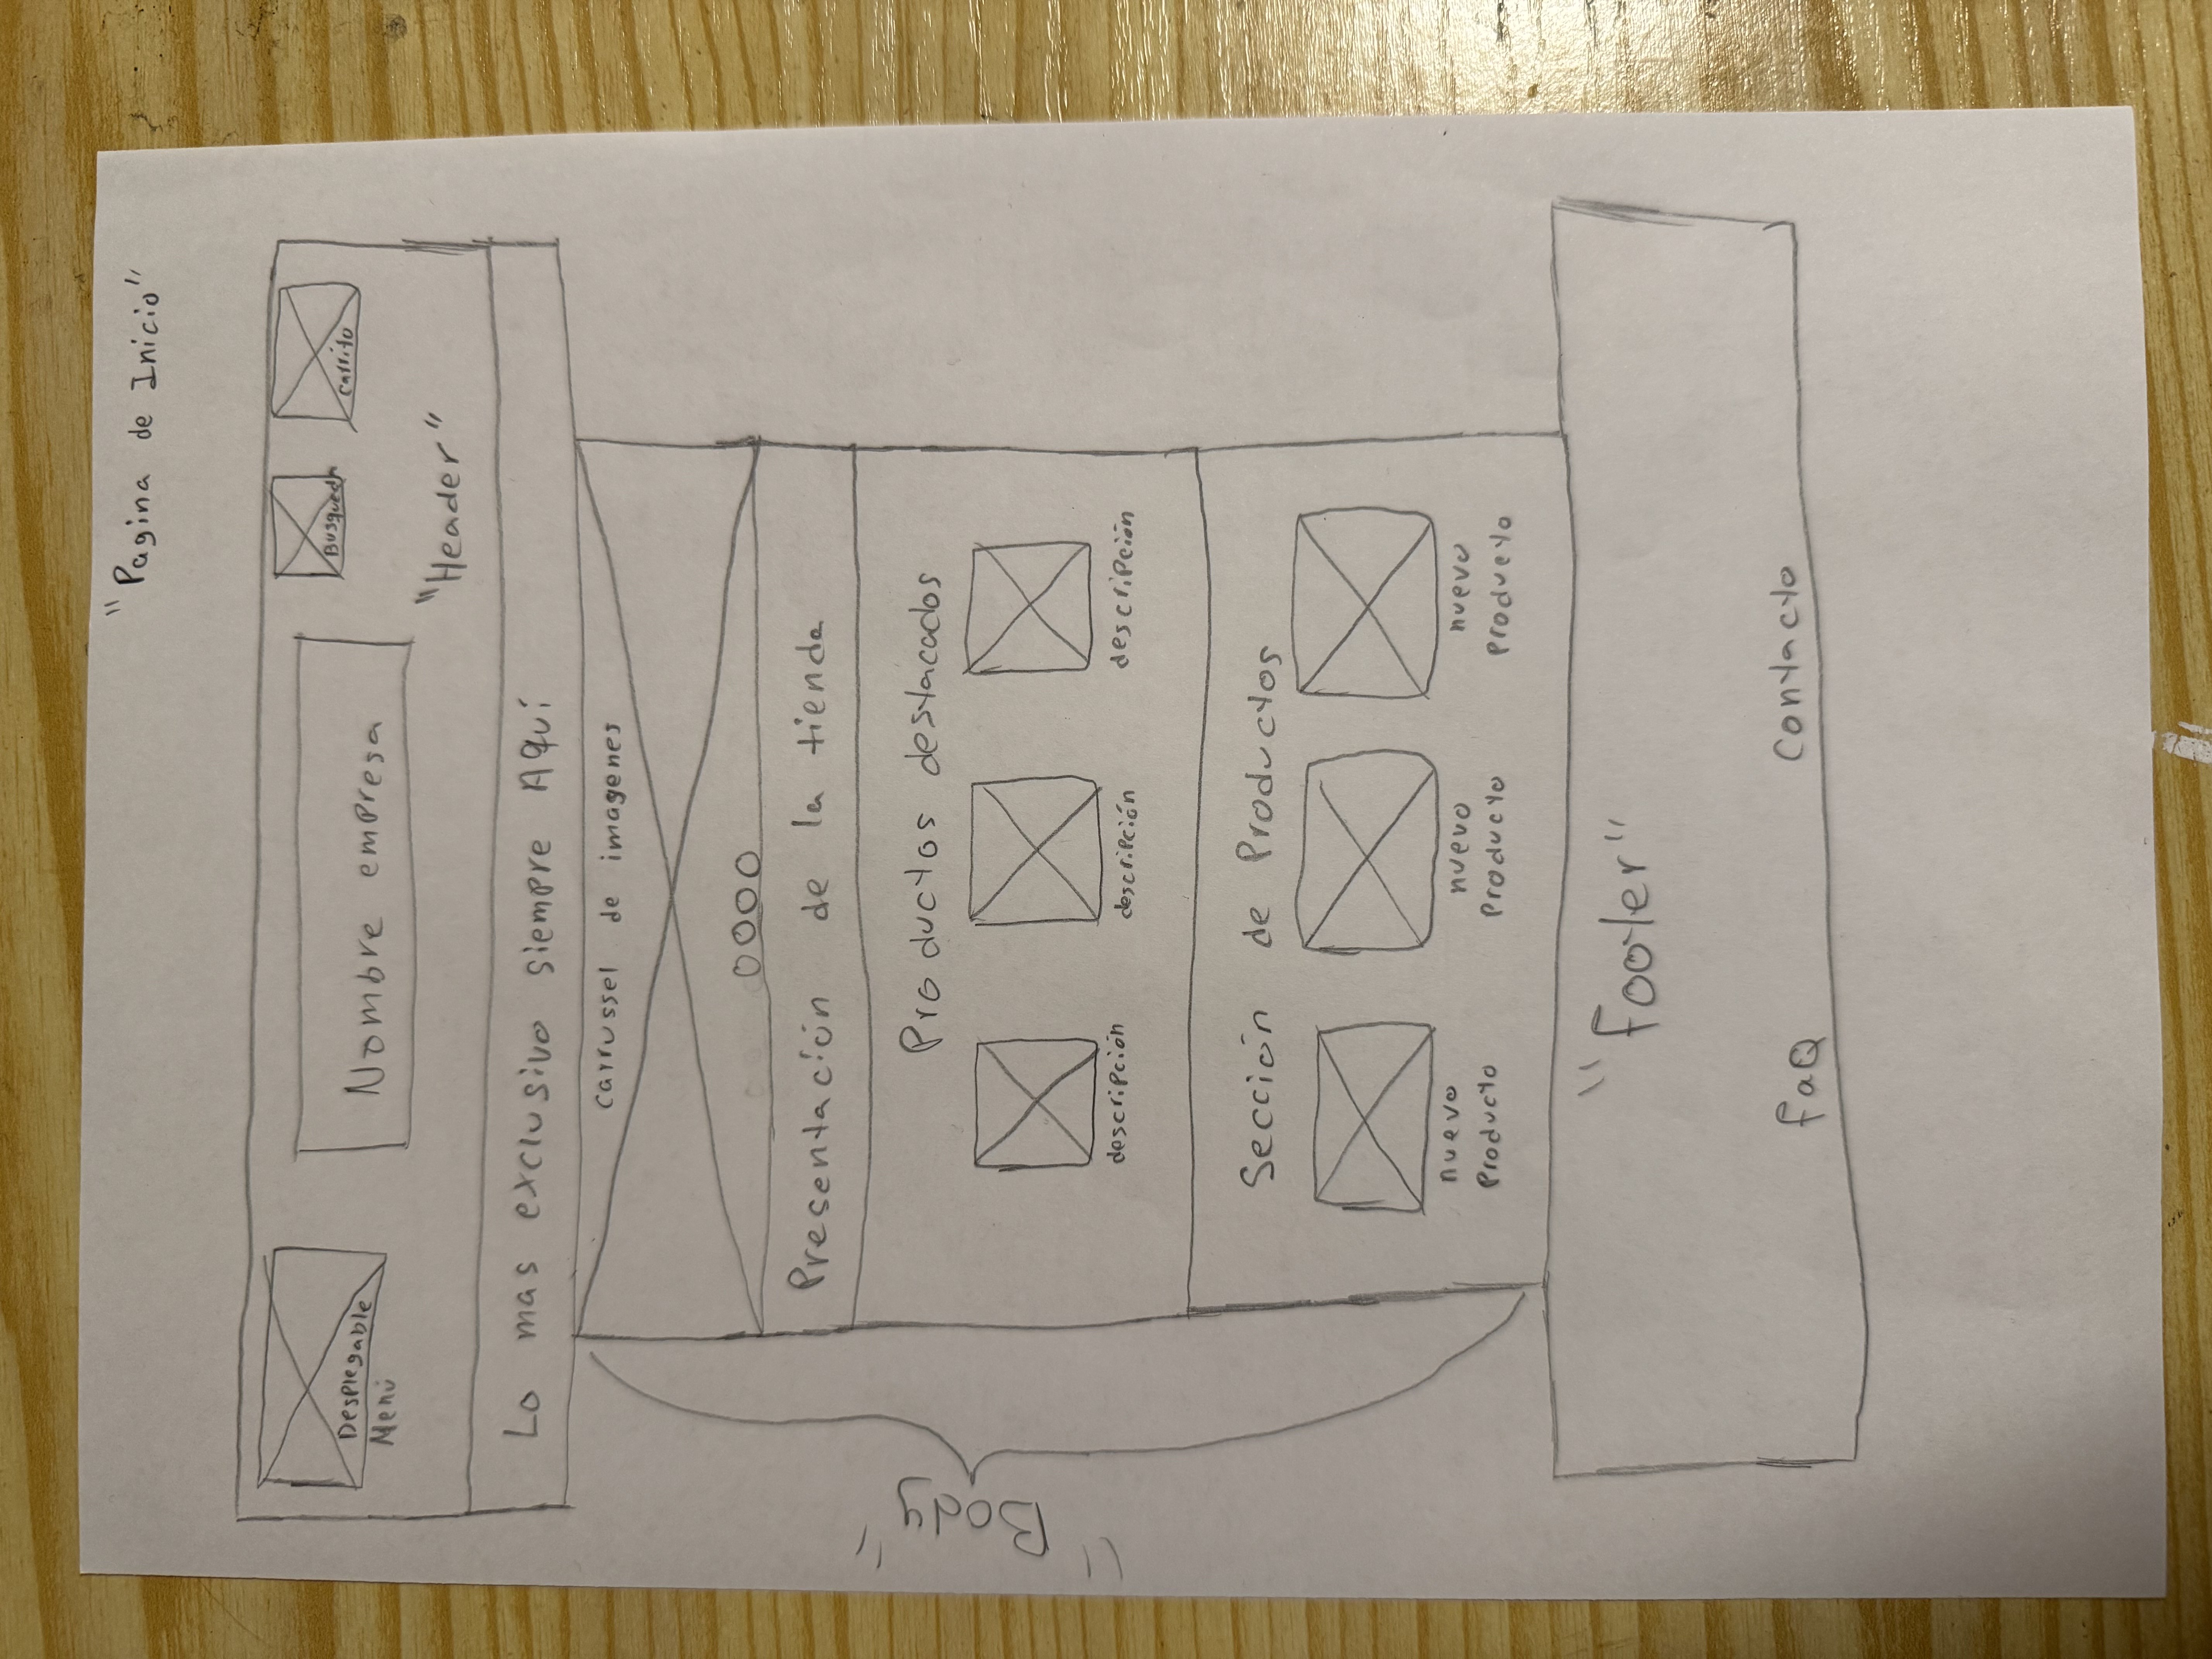 "Pagina de Inicio"
Desplegable
Menú
Nombre empresa
Busqueda
Carrito
"Header"
Lo mas exclusivo siempre Aquí
Carrussel de imagenes
Presentación de la tienda
"Body"
Productos destacados
descripción descripción descripción
Sección de Productos
nuevo nuevo nuevo
Producto Producto Producto
"Footer"
FaQ Contacto